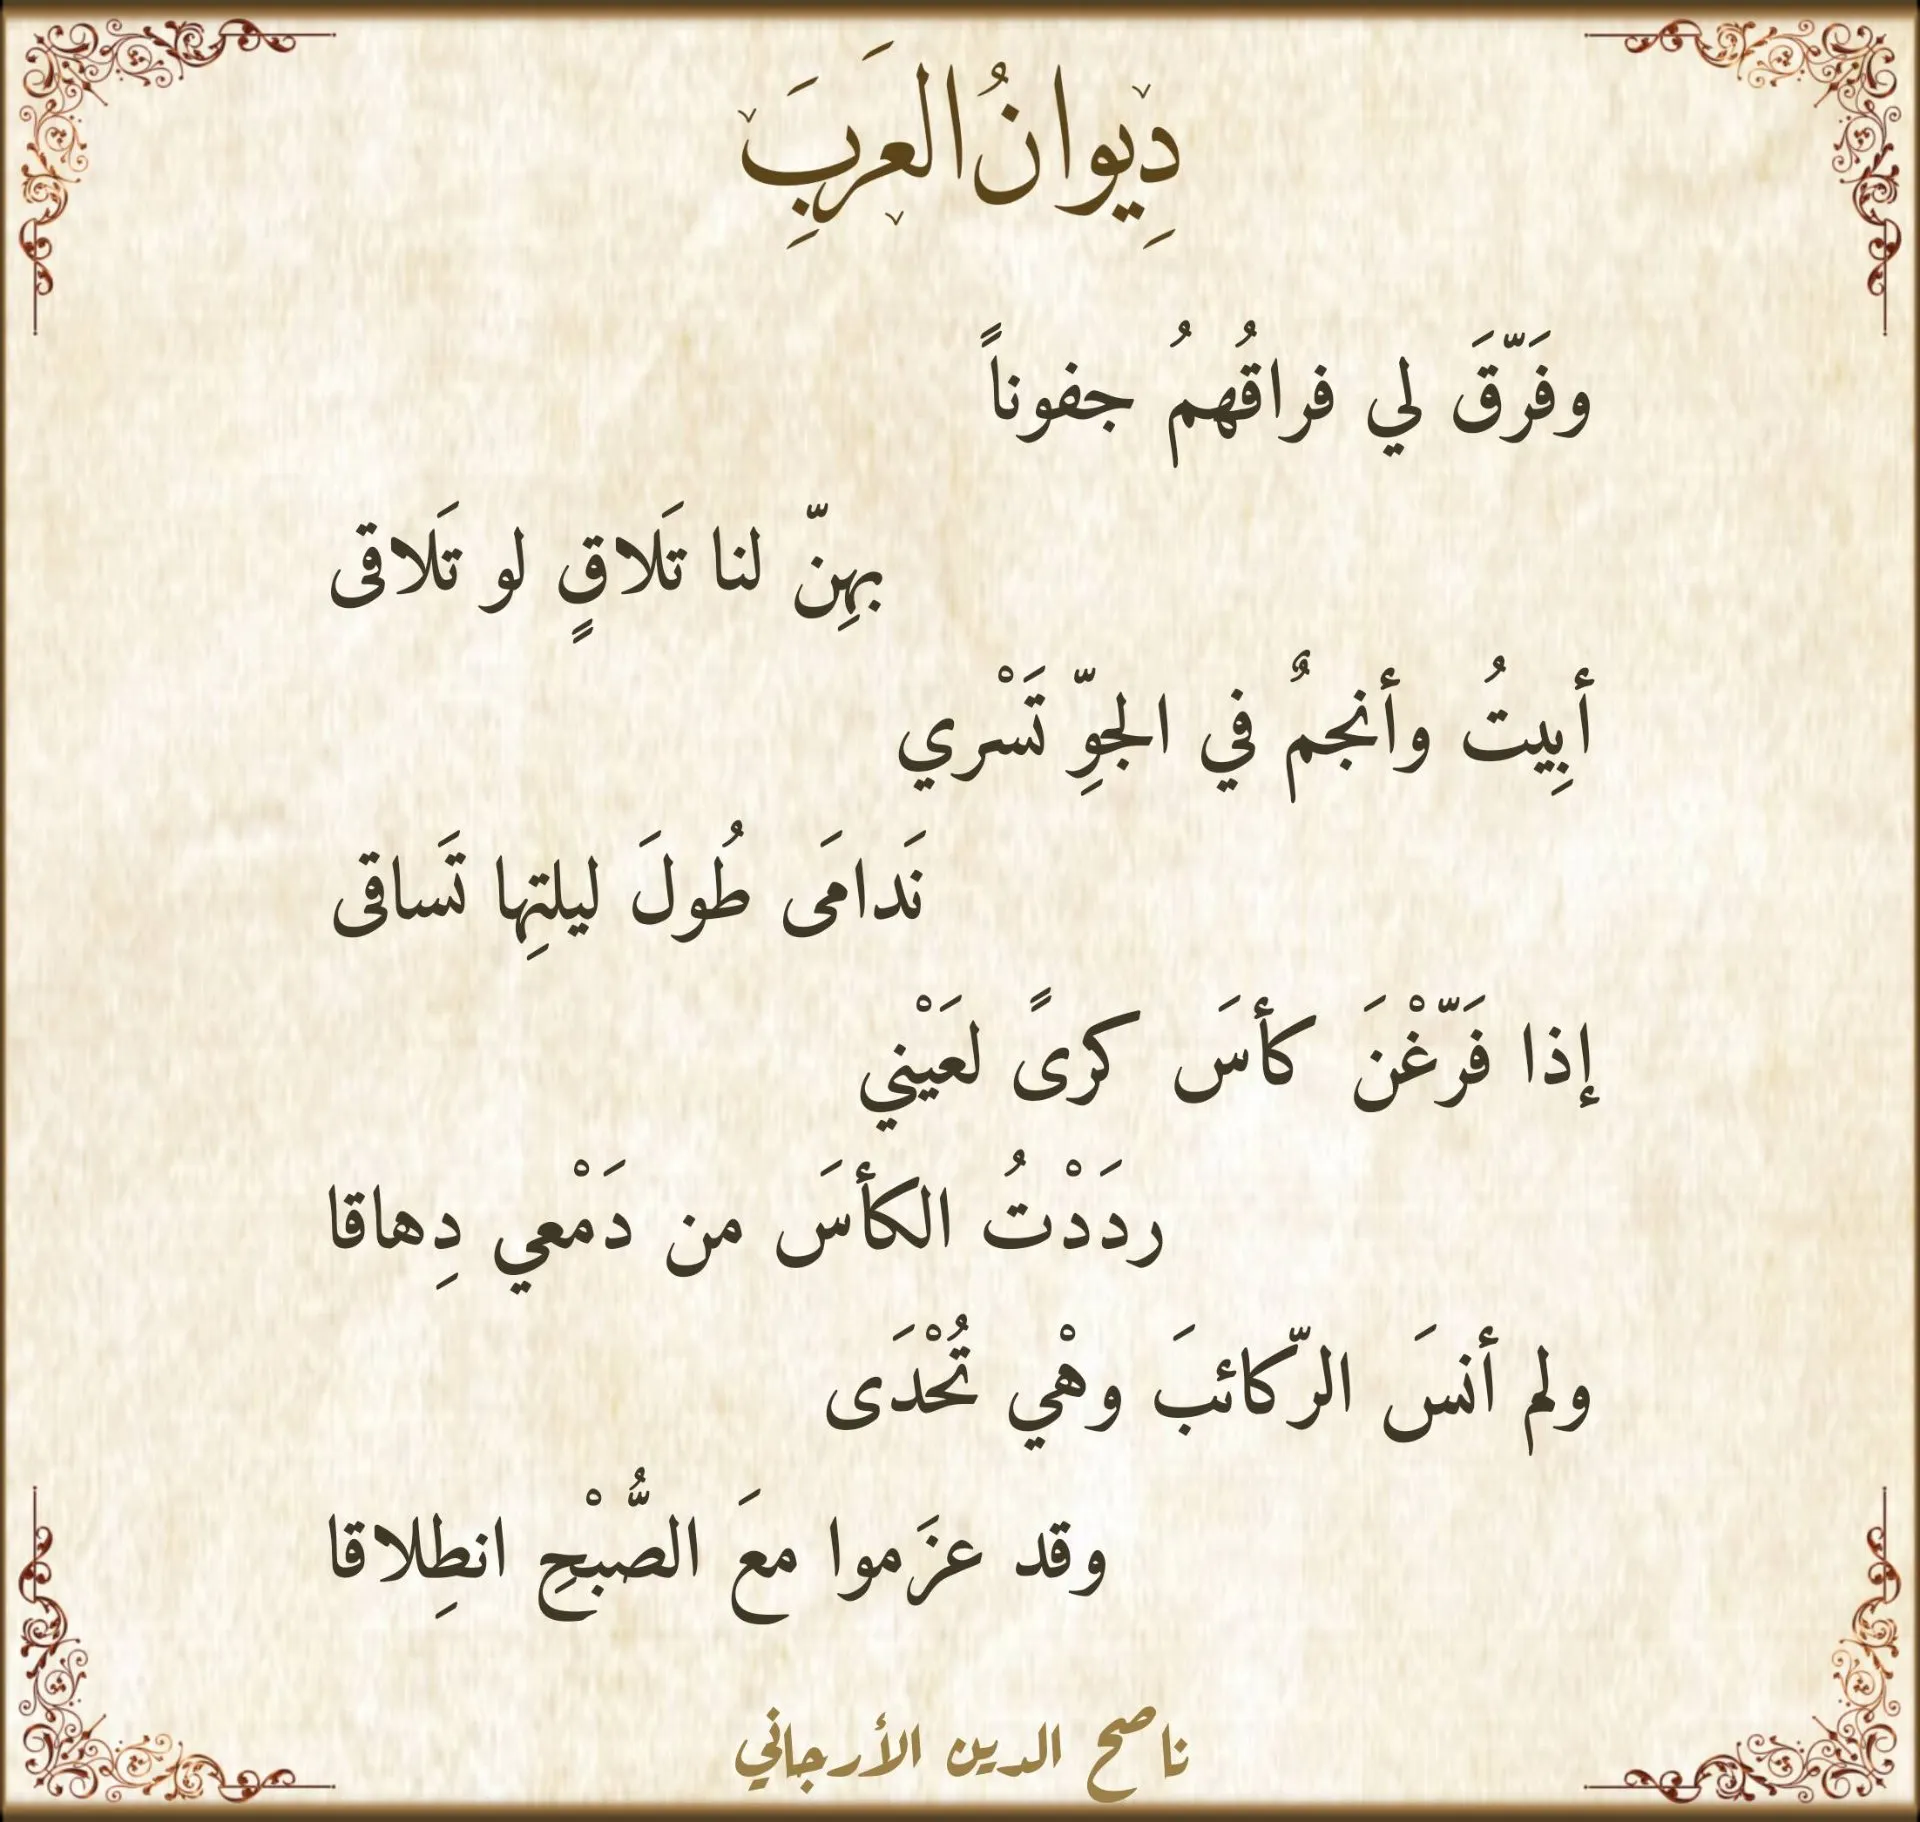 دِيوانُ العَرَبِ
وفَرّقَ لي فراقُهمُ جفوناً
بهِنّ لنا تَلاقٍ لو تَلاقى
أبِيتُ وأنجمٌ في الجوِّ تَسْري
نَدامَى طُولَ ليلتِها تَساقى
إذا فَرّغْنَ كأسَ كرىً لعَيْني
ردَدْتُ الكأسَ من دَمْعي دِهاقا
ولم أنسَ الرّكائبَ وهْي تُحْدَى
وقد عزَموا معَ الصُّبْحِ انطِلاقا
ناصح الدين الأرجاني